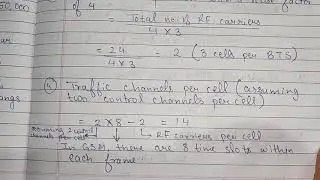 50,000
of 4
= Total no. of RF carriers
4 x 3
= 24
4 x 3
= 2 (3 cells per BTS)
4) Traffic channels per cell (assuming
two control channels per cell)
= 2 x 8 - 2 = 14
assuming 2 control
channels per cell
RF carriers per cell
In GSM there are 8 time slots within
each frame